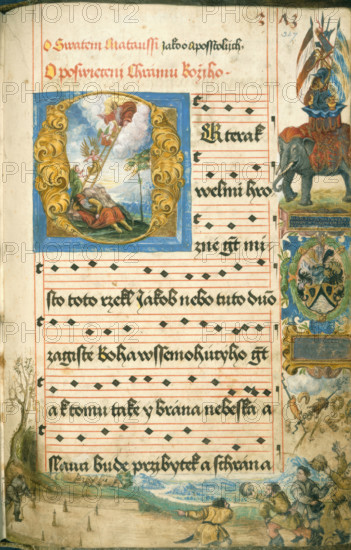 O Swatem Mataussi jako o aposstolich.
O poswieceni Chramu Božiho.
Kterak
welmi hro
zne gt mi
sto toto rzekl Jakob nebo tuto duo
zagiste Boha wssemohucyho gt
a k tomu take y brana nebeska a
slawa bude przibytek a schrana